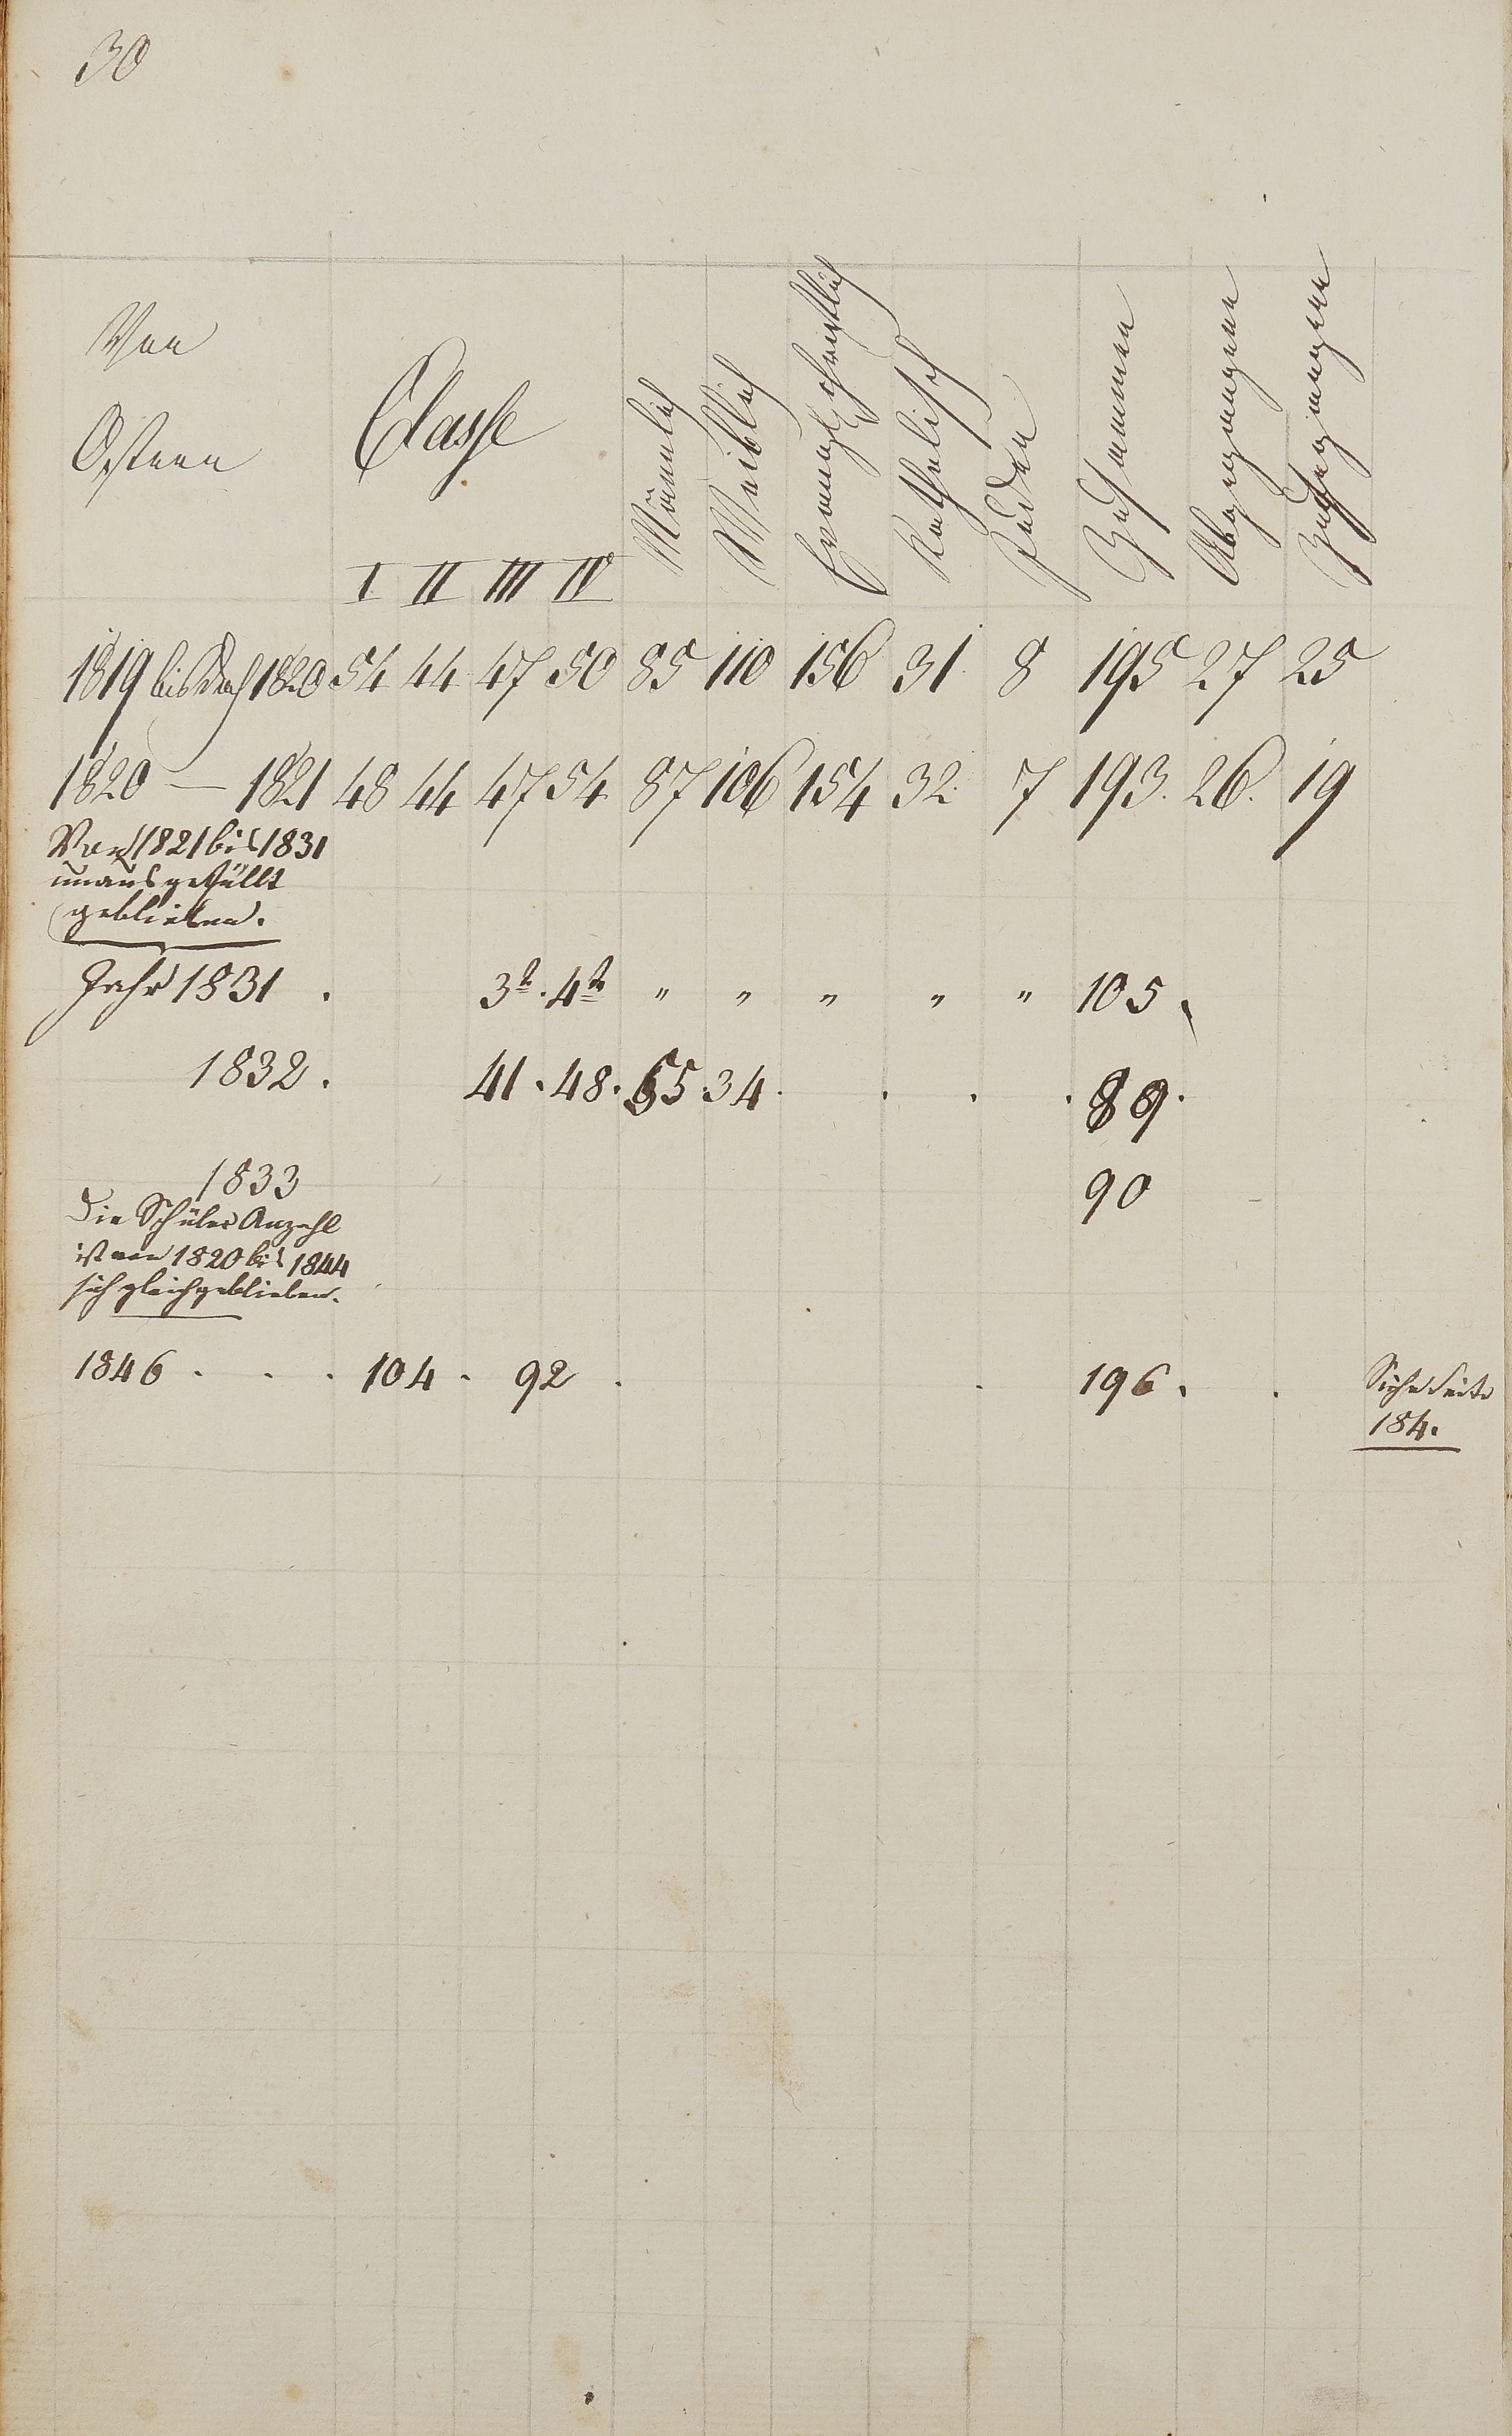 30
Von
Ostern
Classe
I II III IV
Männlich
Weiblich
Evangl. christlich
Katholisch
Juden
Zusammen
Abgegangene
Zugegangene
1819 bis dah 1820 54 44 47 50 85 110 156 31 8 195 27 25
1820 — 1821 48 44 47 54 87 106 154 32. 7 193. 26. 19
Von 1821 bis 1831
unausgefüllt
geblieben.
Jahr 1831 . 3t. 4te " " " " " 105.
1832. 41. 48. 55 34. . . . 89.
1833 90
Die Schüler Anzahl
ist von 1820 bis 1844
sich gleich geblieben.
1846 . . . 104 . 92 . . 196. . Siehe Seite
184.